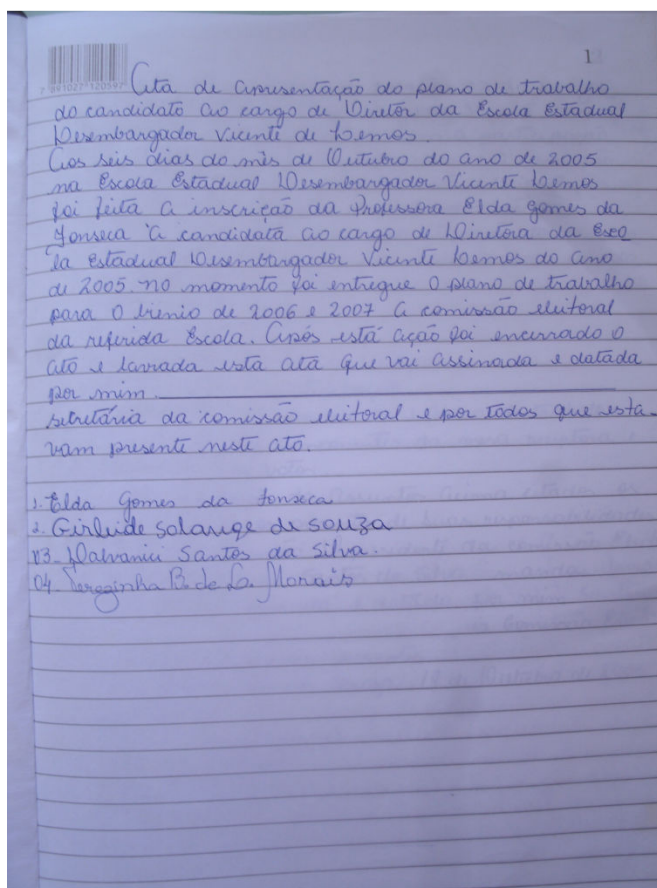 1
7 891027 120597
Ata de apresentação do plano de trabalho
do candidato ao cargo de Diretor da Escola Estadual
Desembargador Vicente de Lemos.
Aos seis dias do mês de Outubro do ano de 2005
na Escola Estadual Desembargador Vicente Lemos
foi feita a inscrição da Professora Elda Gomes da
Fonseca a candidata ao cargo de Diretora da Esco
la Estadual Desembargador Vicente Lemos do ano
de 2005. no momento foi entregue o plano de trabalho
para o bienio de 2006 e 2007 a comissão eleitoral
da referida Escola. Após está ação foi encerrado o
ato e lavrada esta atá que vai assinada e datada
por mim.
secretária da comissão eleitoral e por todos que esta-
vam presente neste ato.
1. Elda Gomes da Fonseca
2. Girleide Solange de Souza
03. Dalvanici Santos da Silva.
04. Terezinha B. de L. Morais